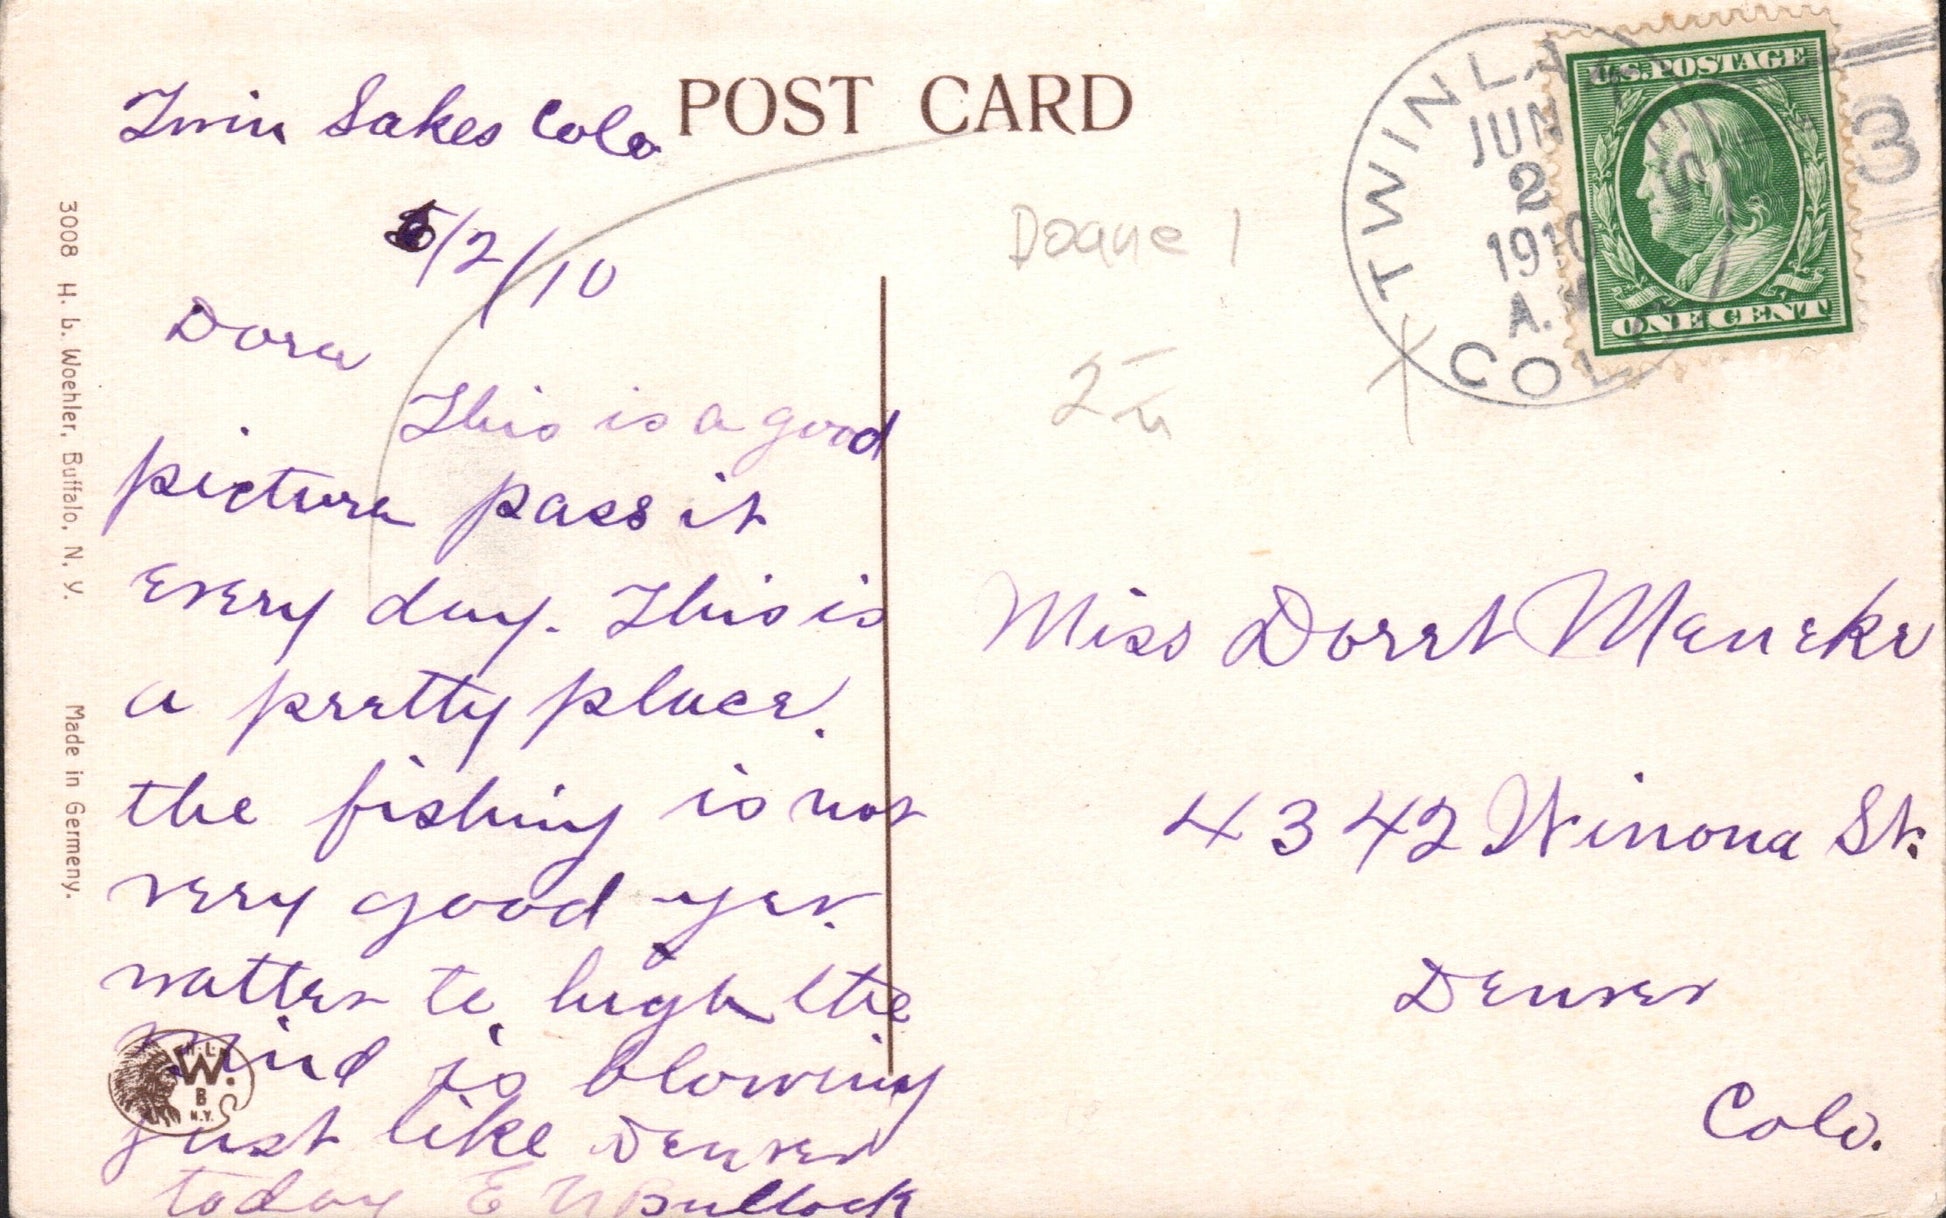 POST CARD
Twin Lakes Colo
6/2/10
Dora
This is a good
picture pass it
every day. This is
a pretty place.
the fishing is not
very good yet.
watter to high the
wind is blowing
just like Denver
today E N Bullock
TWIN LAKES
JUN
2
1910
A.
COLO
3
U.S. POSTAGE
ONE CENT
Doane 1
2
Miss Doret Meneke
4342 Winona St.
Denver
Colo.
3008 H. L. Woehler, Buffalo, N. Y. Made in Germeny.
H.L.
W.
B
N.Y.